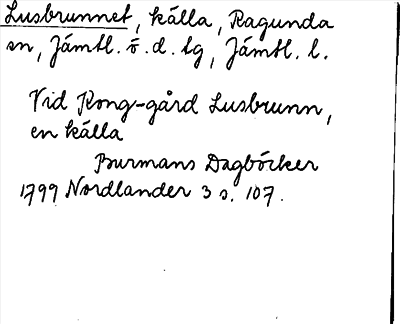 Lusbrunnet, källa, Ragunda
sn, Jämtl. ö. d. tg, Jämtl. l.
Vid Kong-gård Lusbrunn,
en källa
Burmans Dagböcker
1799 Nordlander 3 s. 107.